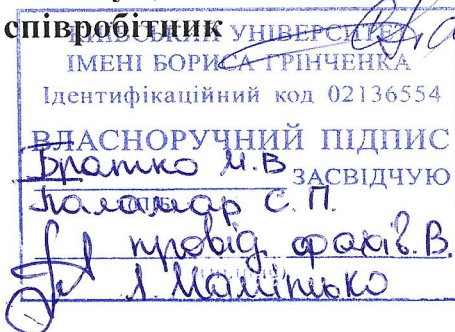 співробітник
КИЇВСЬКИЙ УНІВЕРСИТЕТ
ІМЕНІ БОРИСА ГРІНЧЕНКА
Ідентифікаційний код 02136554
ВЛАСНОРУЧНИЙ ПІДПИС
Братко М.В
ЗАСВІДЧУЮ
Паламар С.П.
провід. фахів. В.